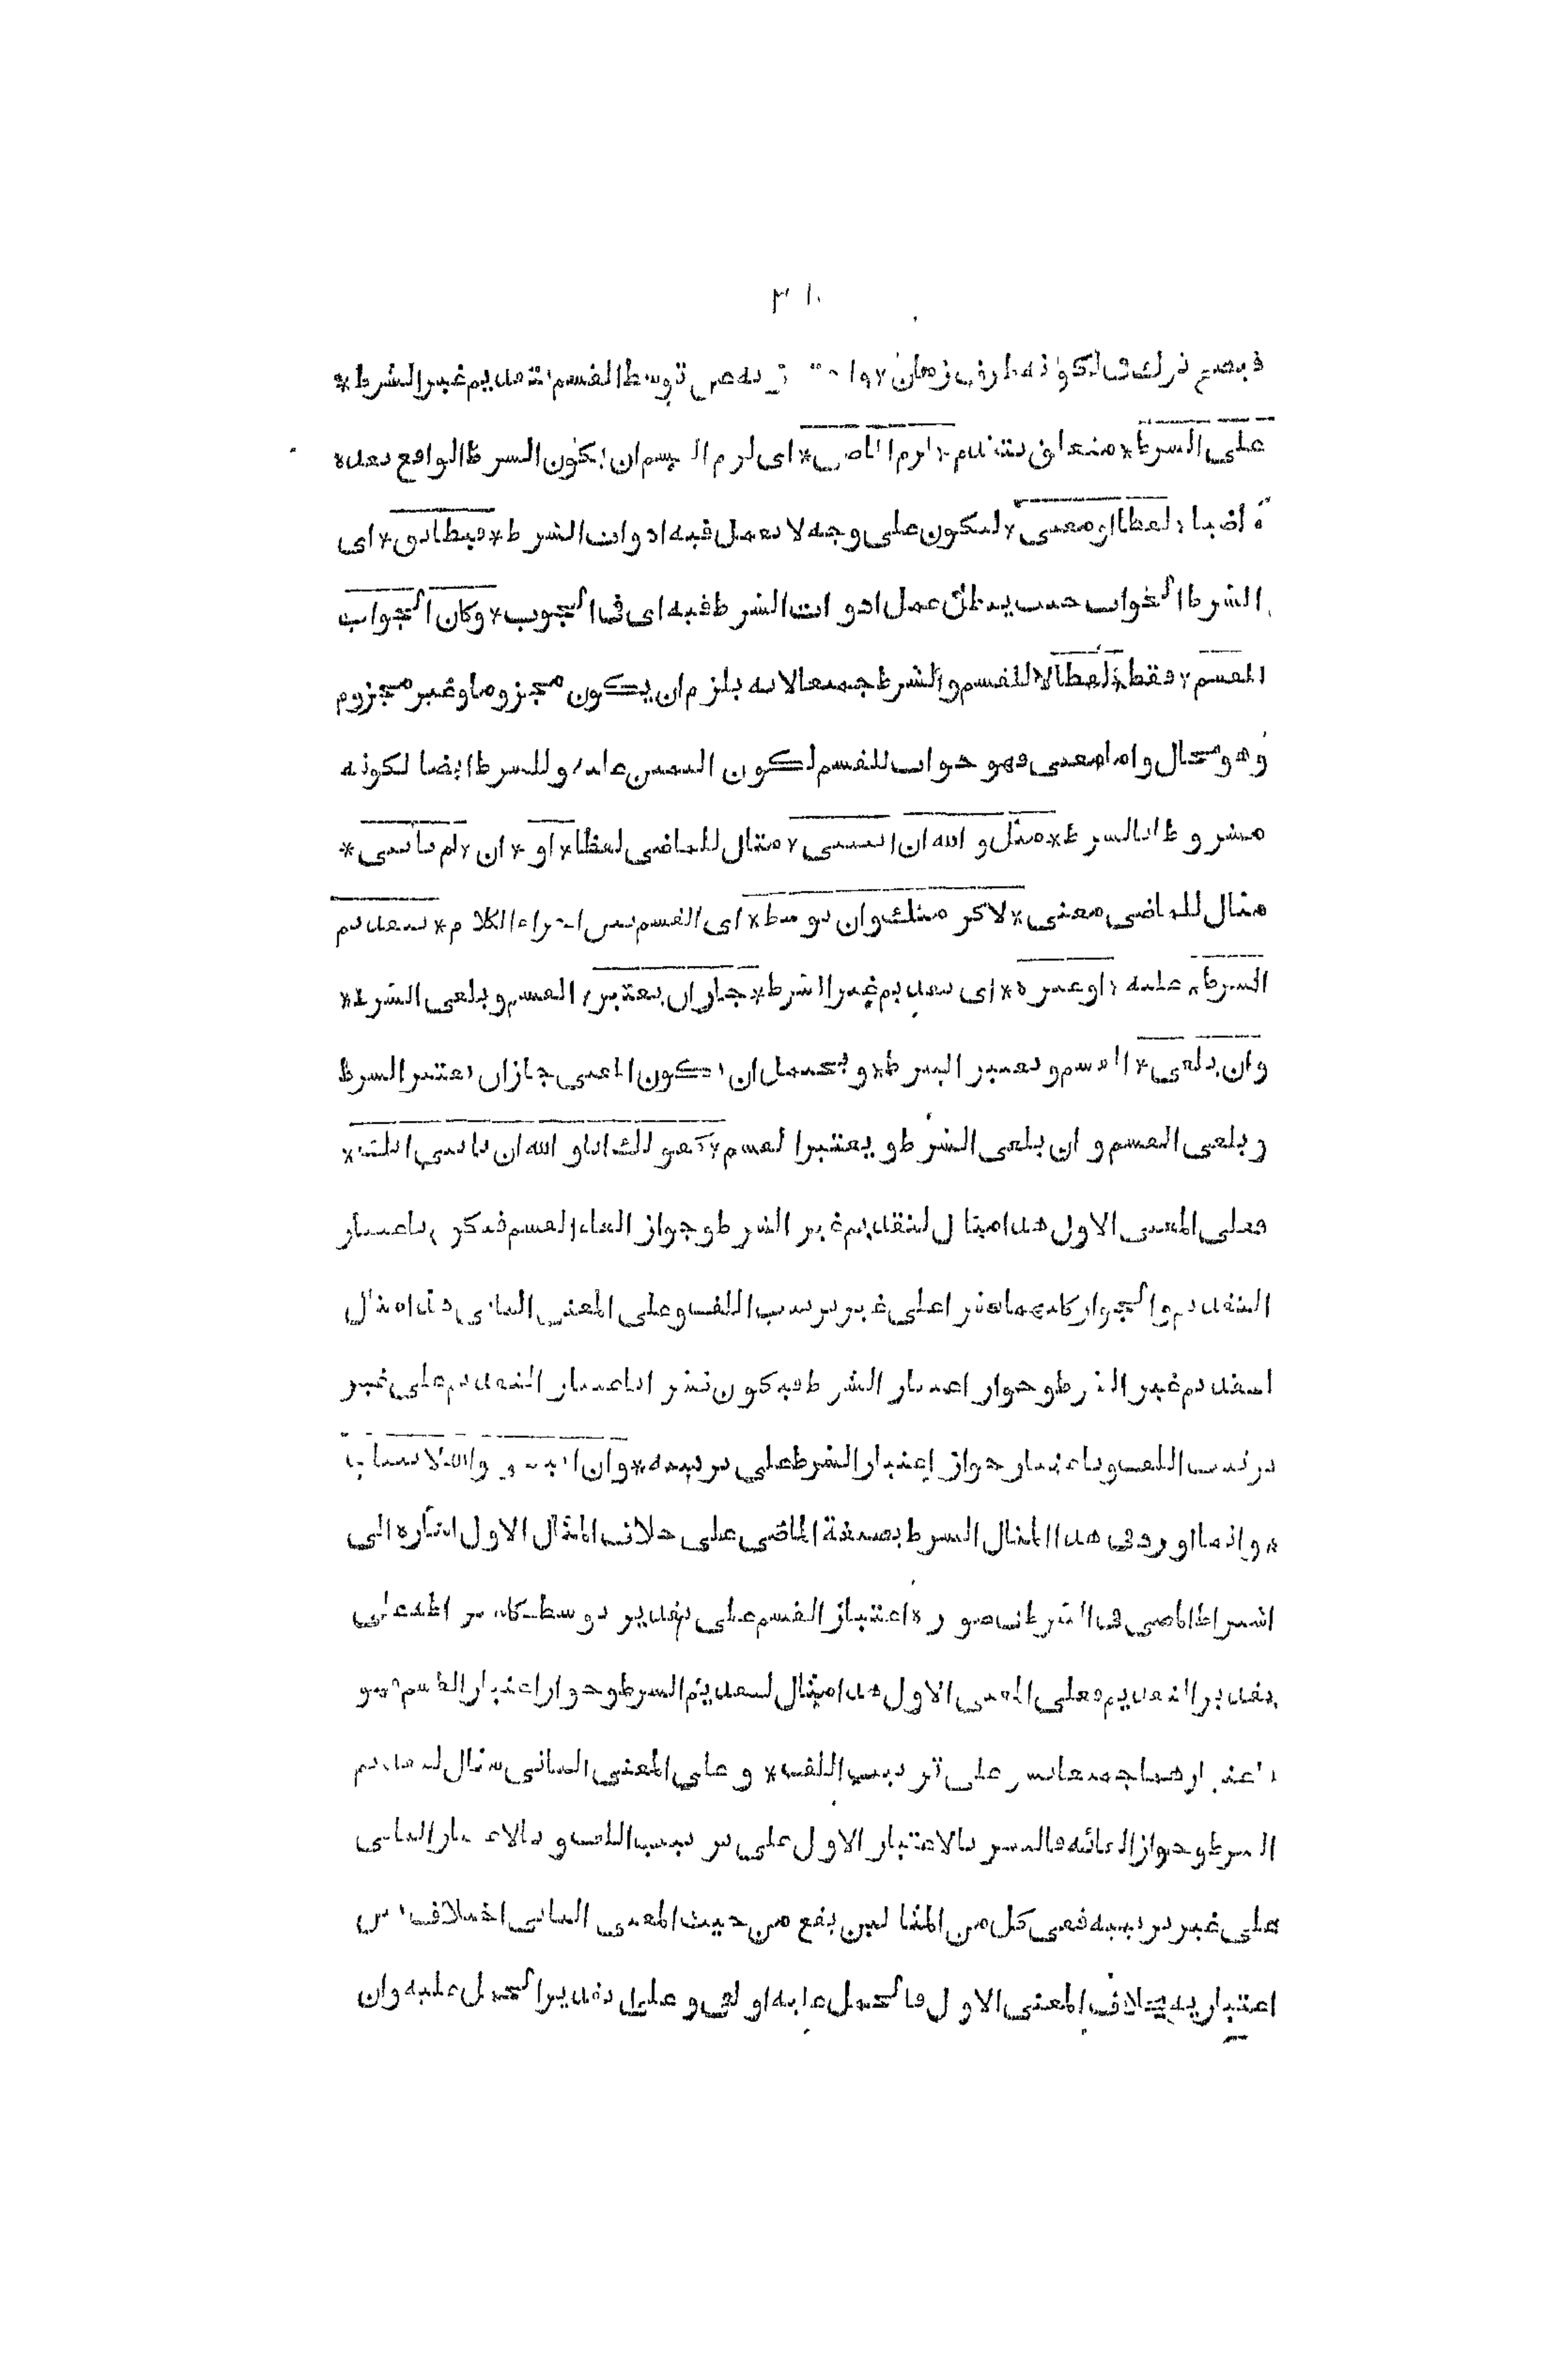 ٣١٠
فيصح ترك في لكونه ظرف زمان * توسط القسم بتقديم غير الشرط *
على الشرط * متعلق بتقدم * لزم الماضي * اى لزم القسم ان يكون الشرط الواقع بعده
ماضيا * لفظا او معنى * ليكون على وجه لا تعمل فيه ادوات الشرط * فيطابق * اى
الشرط الجواب حيث يبطل عمل ادوات الشرط فيه اى فى الجوب * وكان الجواب
للقسم * فقط * لفظا لا للقسم والشرط جميعا لانه يلزم ان يكون مجزوما وغير مجزوم
وهو محال واما معنى فهو جواب للقسم لكون اليمين عليه وللشرط ايضا لكونه
مشروطا بالشرط * مثل والله ان اتيتنى * مثال للماضى لفظا * او * ان * لم تأتنى *
مثال للماضى معنى * لاكرمتك وان توسط * اى القسم بين اجزاء الكلام * بتقديم
الشرط * عليه * او غيره * اى تقديم غير الشرط * جاز ان يعتبر * القسم ويلغى الشرط *
وان يلغى * القسم ويعتبر الشرط * ويحتمل ان يكون المعنى جاز ان يعتبر الشرط
ويلغى القسم وان يلغى الشرط ويعتبر القسم * كقولك انا والله ان تأتنى اتك *
فعلى المعنى الاول هذا مثال لتقديم غير الشرط وجواز الغاء القسم فذكر باعتبار
التقديم والجواز كليهما نشرا على غير ترتيب اللف وعلى المعنى الثانى هذا مثال
لتقديم غير الشرط وجواز اعتبار الشرط فيكون نشرا باعتبار التقديم على غير
ترتيب اللف وباعتبار جواز اعتبار الشرط على ترتيبه * وان والله لا
* وانما اورد فى هذا المثال الشرط بصيغة الماضى على خلاف المثال الاول اشارة الى
اشتراط الماضى فى الشرط فى صورة اعتبار القسم على تقدير توسطه على
تقدير التقديم فعلى المعنى الاول هذا مثال لتقديم الشرط وجواز اعتبار القسم
اعتبارهما جميعا نشر على ترتيب اللف * وعلى المعنى الثانى مثال لتقديم
الشرط وجواز الغائه فالنشر بالاعتبار الاول على ترتيب اللف وبالاعتبار الثانى
على غير ترتيبه ففى كل من المثالين يقع من حيث المعنى الثانى اختلاف بين
اعتباريه بخلاف المعنى الاول فالحمل عليه اولى وعلى تقدير الحمل عليه وان